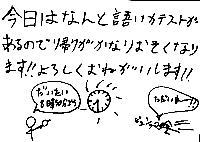 今日はなんと語いカテストが
あるので帰りがかなりおそくなり
ます!!よろしくおねがいします!!
だいたい
8時ぐらい
ただいま!!